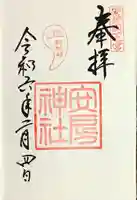 奉拝
安房
神社
令和六年二月四日